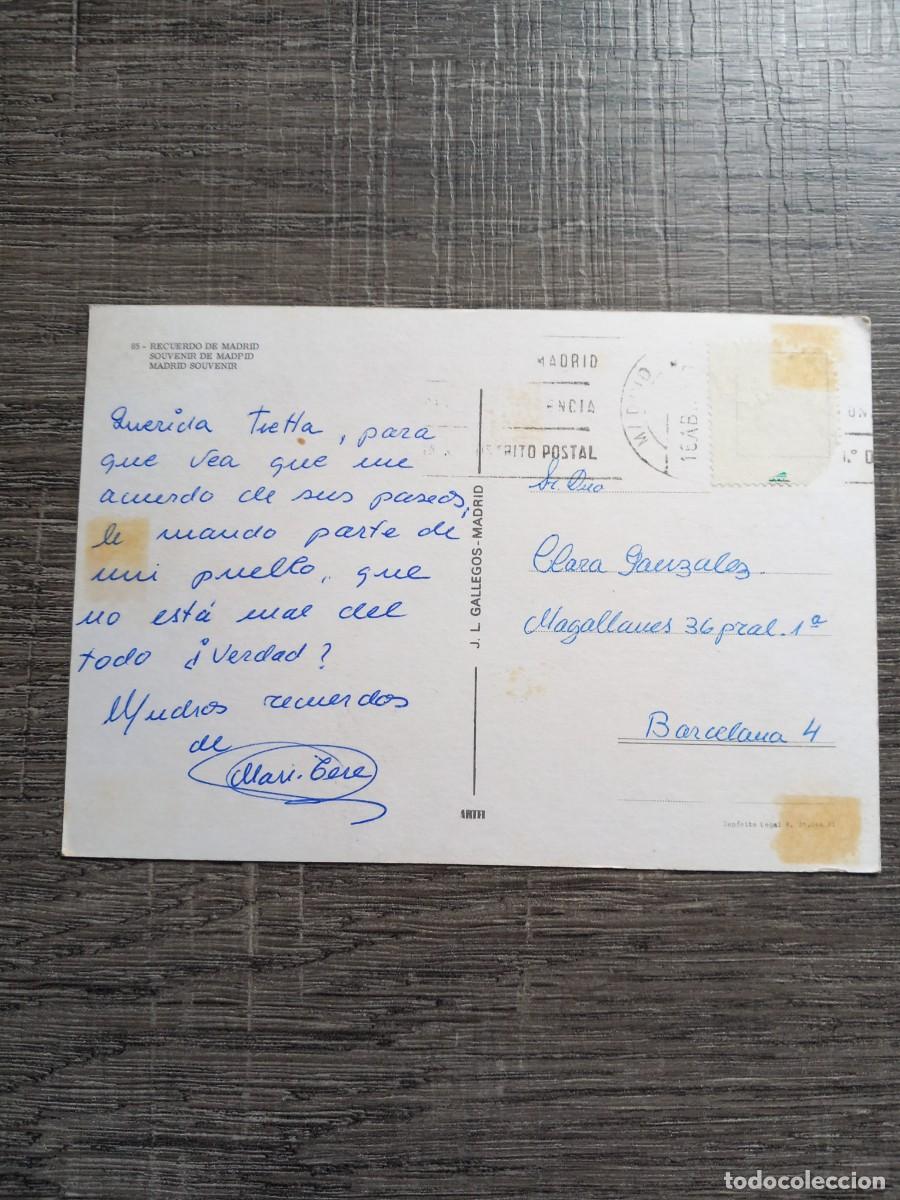 85 - RECUERDO DE MADRID
SOUVENIR DE MADPID
MADRID SOUVENIR
Querida Tietta, para
que vea que me
acuerdo de sus paseos,
le mando parte de
mi pueblo, que
no está mal del
todo ¿Verdad?
Muchos recuerdos
de
Mari-Tere
J. L. GALLEGOS-MADRID
ARTFI
MADRID
NCIA
RITO POSTAL
M DRID
16 AB
UN
1.º D
Clara Gonzalez
Magallanes 36 pral. 1ª
Barcelona 4
Depósito Legal
todocoleccion